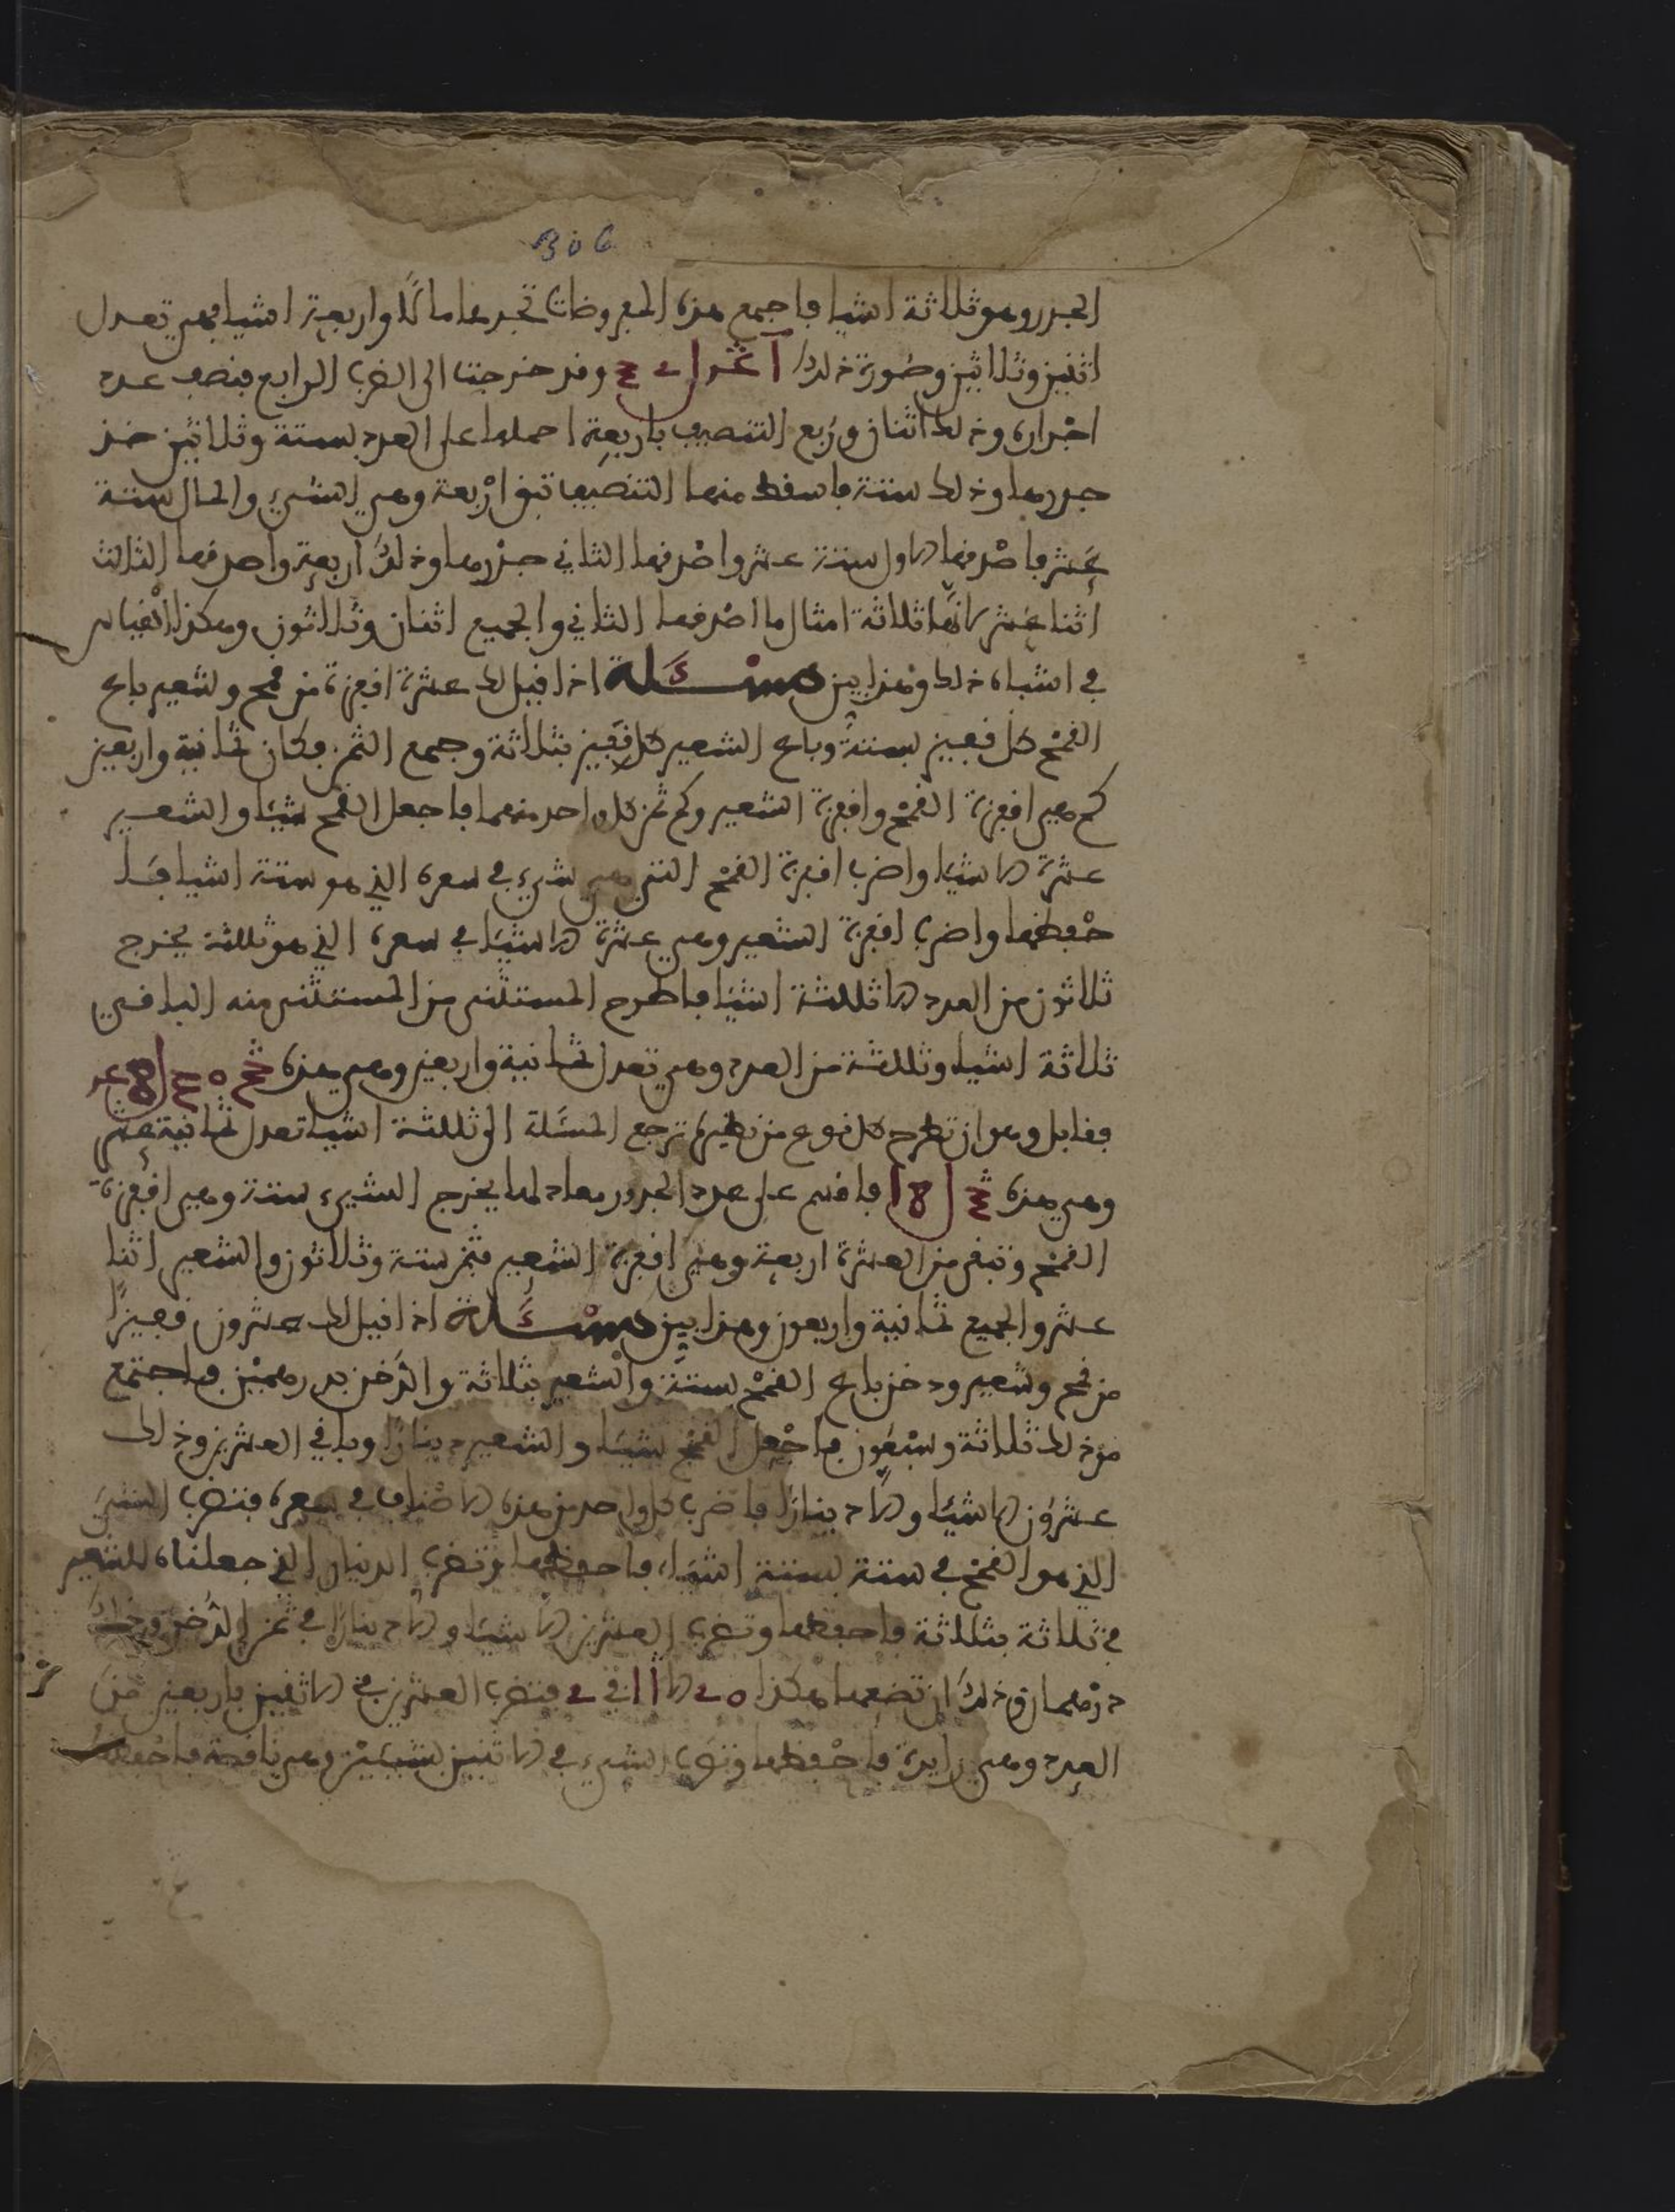 306
الجذر وهو ثلاثة اشيا فاجمع هذه المفروضات تجدها مالًا واربعة اشيا فهي تعدل
اثنين وثلاثين وصورة ذلك وقد خرجت الى الضرب الرابع فنصف عدد
اجذاره وذلك اثنان وربع التنصيف باربعة احملها على العدد بستة وثلاثين خذ
جذرها وذلك ستة فاسقط منها التنصيف تبق اربعة وهي الشيء والمال ستة
عشر فاصرفها الاول ستة عشر واصرفها الثاني جذرها وذلك اربعة واصرفها الثالث
اثنا عشر لانها ثلاثة امثال ما اصرفها الثاني والجميع اثنان وثلاثون وهكذا القياس
في اشباه ذلك وهذا بين مسئلة اذا قيل لك عشرة اقفزة من قمح وشعير باع
القمح كل قفيز بستة وباع الشعير كل قفيز بثلاثة وجمع الثمن فكان ثمانية واربعين
كم هي اقفزة القمح واقفزة الشعير وكم ثمن كل واحد منهما فاجعل القمح شيئا والشعير
عشرة الا شيئا واضرب اقفزة القمح التي هي شيء في سعره الذي هو ستة اشيا فا
حفظها واضرب اقفزة الشعير وهي عشرة الا شيئا في سعره الذي هو ثلثة يخرج
ثلاثون من العدد الا ثلثة اشيا فاطرح المستثنى من المستثنى منه الباقي
ثلاثة اشيا وثلثة من العدد وهي تعدل ثمانية واربعين وهي هذه
فقابل وهو ان تطرح كل نوع من نظيره ترجع المسئلة الى ثلثة اشيا تعدل ثمانية عشر
وهي هذه فاقسم على عدد الجذور معادلها يخرج الشيء ستة وهي اقفزة
القمح وتبقى من العشرة اربعة وهي اقفزة الشعير فثمن ستة وثلاثون والشعير اثنا
عشر والجميع ثمانية واربعون وهذا بين مسئلة اذا قيل لك عشرون قفيزًا
من قمح وشعير ودخن باع القمح بستة والشعير بثلاثة والدخن بدرهمين فاجتمع
من ذلك ثلاثة وسبعون فاجعل القمح شيئا والشعير دينارًا وباقي العشرين وذلك
عشرون الا شيئا والا دينارًا فاضرب كل واحد من هذه الاصناف في سعره فتضرب الشيء
الذي هو القمح في ستة بستة اشياء فاحفظها ثم تضرب الدينار الذي جعلناه للشعير
في ثلاثة بثلاثة فاحفظها وتضرب العشرين الا شيئا والا دينارًا في ثمن الدخن وذلك
درهمان وذلك ان تضعها هكذا فتضرب العشرين في الاثنين باربعين من
العدد وهي زايدة فاحفظها وتضرب الشيء في الاثنين بشيئين وهي ناقصة فاحفظها